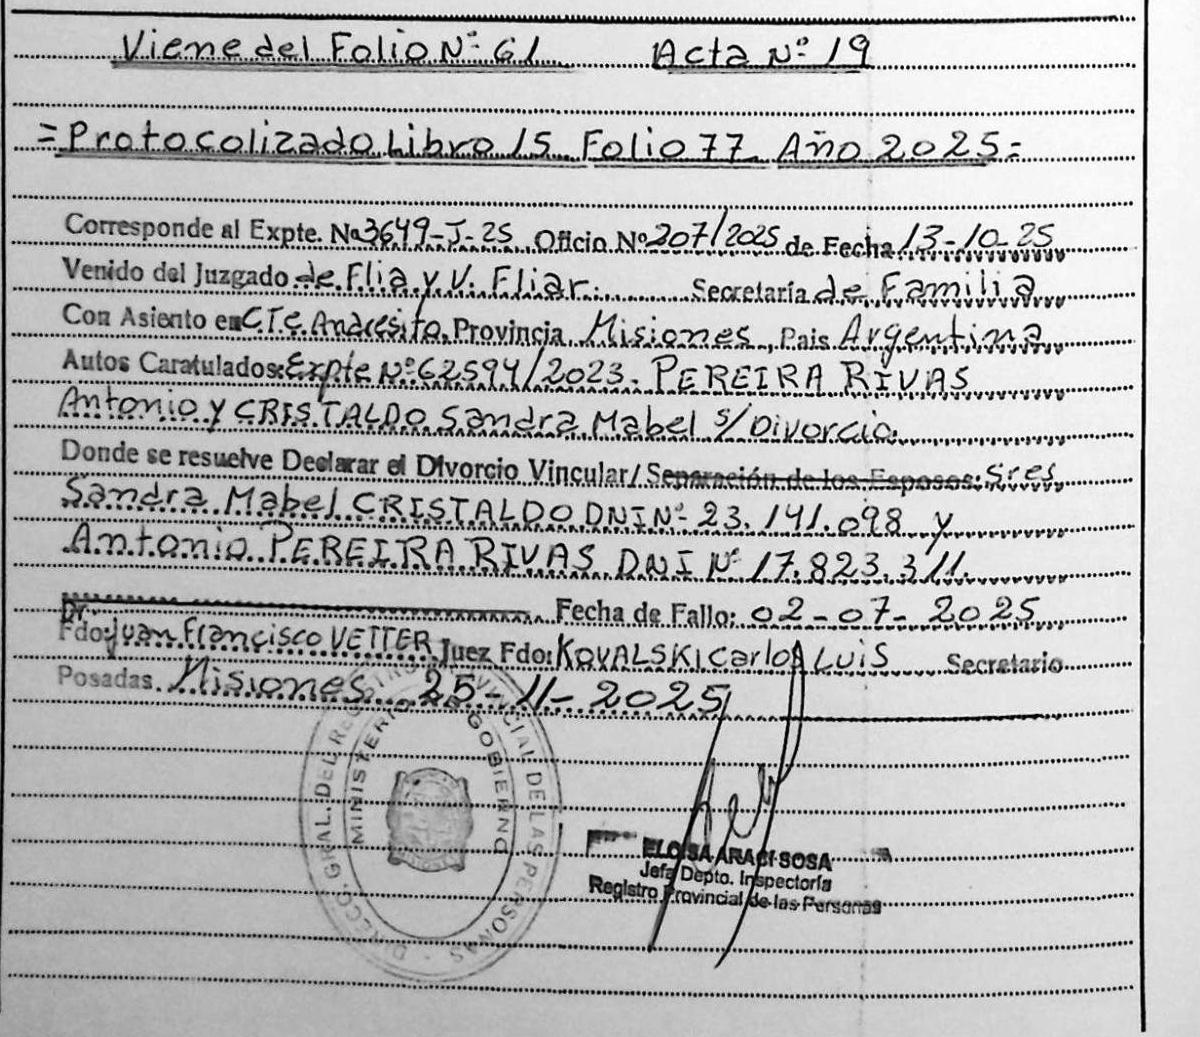 Viene del Folio Nº 61 Acta Nº 19
=Protocolizado Libro 15 Folio 77 Año 2025=
Corresponde al Expte. Nº 3649-J-25 Oficio Nº 207/2025 de Fecha 13-10-25
Venido del Juzgado de Flia y V. Fliar. Secretaría de Familia
Con Asiento en Cte. Andresito, Provincia Misiones, Pais Argentina
Autos Caratulados: Expte Nº 62594/2023. PEREIRA RIVAS
Antonio y CRISTALDO Sandra Mabel s/ Divorcio
Donde se resuelve Declarar el Divorcio Vincular/ Separación de los Esposos: Sres
Sandra Mabel CRISTALDO DNI Nº 23.141.098 y
Antonio PEREIRA RIVAS DNI Nº 17.823.311.
Fecha de Fallo: 02-07-2025
Dr.
Fdo: Juan Francisco VETTER Juez Fdo: KOVALSKI Carlos LUIS Secretario
Posadas. Misiones 25-11-2025
DIRECC. GRAL. DEL REGISTRO PROVINCIAL DE LAS PERSONAS
MINISTERIO DE GOBIERNO
ELOISA ARACI SOSA
Jefa Depto. Inspectoría
Registro Provincial de las Personas